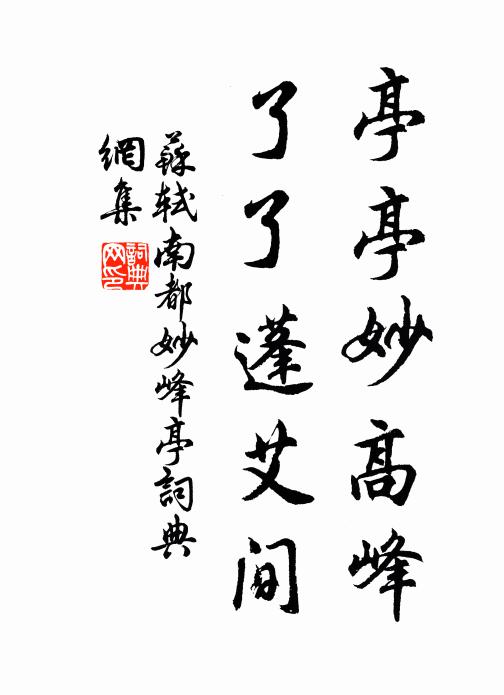 亭亭妙高峰
了了蓬艾間
蘇軾南都妙峰亭詞典
網集
詞典網印